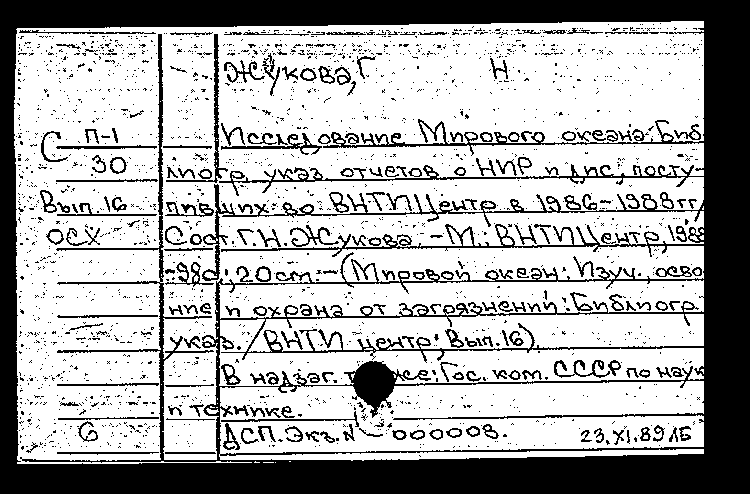 Жукова, Г Н
С П-1 Исследование Мирового океана: Биб-
30 лиогр. указ. отчетов о НИР и дис., посту-
Вып. 16 пивших во ВНТИЦентр в 1986-1988гг/
ОСХ Сост. Г.Н. Жукова. -М.: ВНТИЦентр, 1988
-98с.; 20см. -(Мировой океан: Изуч., осво
ние и охрана от загрязнений: Библиогр.
указ. / ВНТИ центр; Вып. 16).
В надзаг. также: Гос. ком. СССР по наук
и технике.
6 ДСП. Экз. N - 000008. 23.XI.89 ЛБ